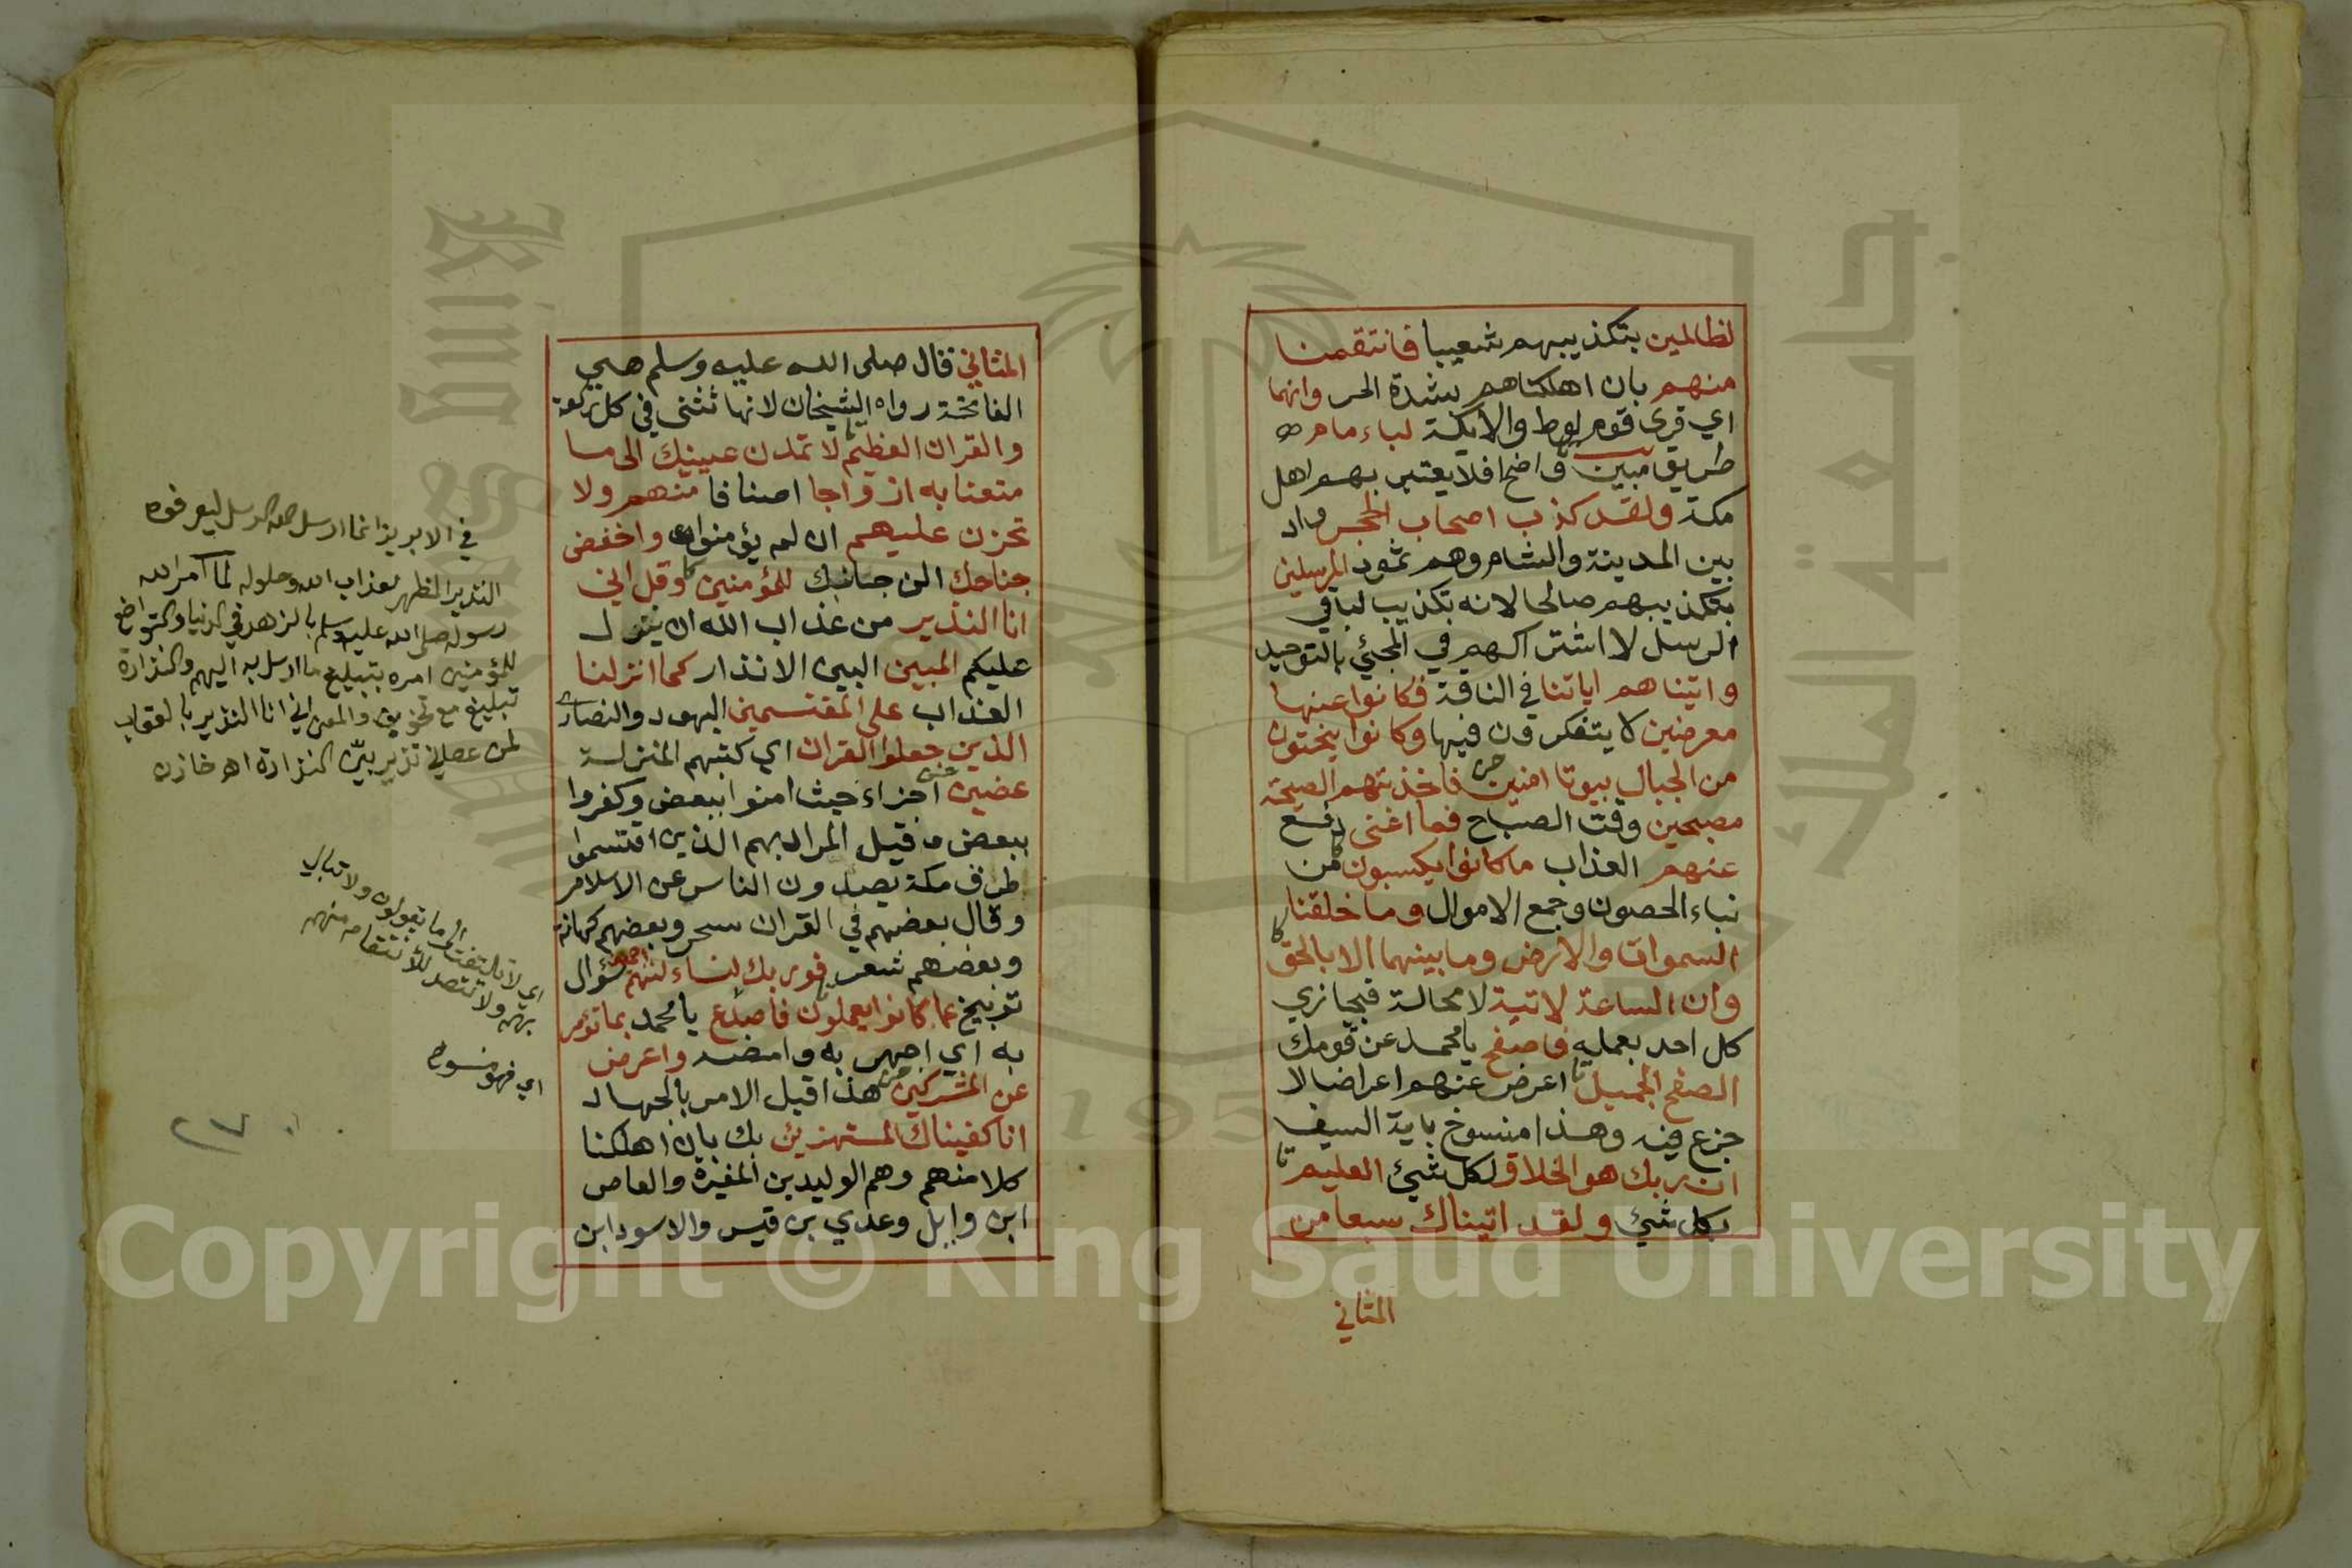 لظالمين بتكذيبهم شعيبا فانتقمنا
منهم بان اهلكناهم بشدة الحر وانهما
اي قرى قوم لوط والأيكة لباءمام
طريق مبين واضح افلا يعتبر بهم اهل
مكة ولقد كذب اصحاب الحجر واد
بين المدينة والشام وهم ثمود المرسلين
بتكذيبهم صالحا لانه تكذيب لباقي
الرسل لاشتراكهم في المجئ بالتوحيد
واتيناهم اياتنا في الناقة فكانوا عنها
معرضين لا يتفكرون فيها وكانوا ينحتون
من الجبال بيوتا امنين فاخذتهم الصيحة
مصبحين وقت الصباح فما اغنى دفع
عنهم العذاب ما كانوا يكسبون من
بناء الحصون وجمع الاموال وما خلقنا
السموات والارض وما بينهما الا بالحق
وان الساعة لاتية لا محالة فيجازي
كل احد بعمله فاصفح يا محمد عن قومك
الصفح الجميل اعرض عنهم اعراضا لا
جزع فيه وهذا منسوخ باية السيف
ان ربك هو الخلاق لكل شئ العليم
بكل شئ ولقد اتيناك سبعا من
المثاني
المثاني قال صلى الله عليه وسلم هي
الفاتحة رواه الشيخان لانها تثنى في كل ركعة
والقران العظيم لا تمدن عينيك الى ما
متعنا به ازواجا اصنافا منهم ولا
تحزن عليهم ان لم يؤمنوا واخفض
جناحك الن جانبك للمؤمنين وقل اني
انا النذير من عذاب الله ان ينزل
عليكم المبين البين الانذار كما انزلنا
العذاب على المقتسمين اليهود والنصارى
الذين جعلوا القران اي كتبهم المنزلة
عضين اجزاء حيث امنوا ببعض وكفروا
ببعض وقيل المراد بهم الذين اقتسموا
طرق مكة يصدون الناس عن الاسلام
وقال بعضهم في القران سحر وبعضهم كهانة
وبعضهم شعر فوربك لنساءلنهم اجمعين سؤال
توبيخ عما كانوا يعملون فاصدع يا محمد بما تؤمر
به اي اجهر به وامضه واعرض
عن المشركين هذا قبل الامر بالجهاد
انا كفيناك المستهزئين بك بان اهلكنا
كلا منهم وهم الوليد بن المغيرة والعاص
ابن وايل وعدي بن قيس والاسود ابن
في الابريز انما ارسل الرسل ليعرفوه
النذير المظهر لعذاب الله وحلوله لما امر الله
رسوله صلى الله عليه وسلم بالزهد في الدنيا والتواضع
للمؤمنين امره بتبليغ ما ارسل به اليهم والنذارة
تبليغ مع تخويف والمعنى اني انا النذير بالعقاب
لمن عصاني نذير بين النذارة اه خازن
اي لا تلتفت لما يقولون ولا تبال
بهم ولا تتصد للانتقام منهم
اي فهو منسوخ
٢٧
جامعة الملك
1957
Copyright © King Saud University